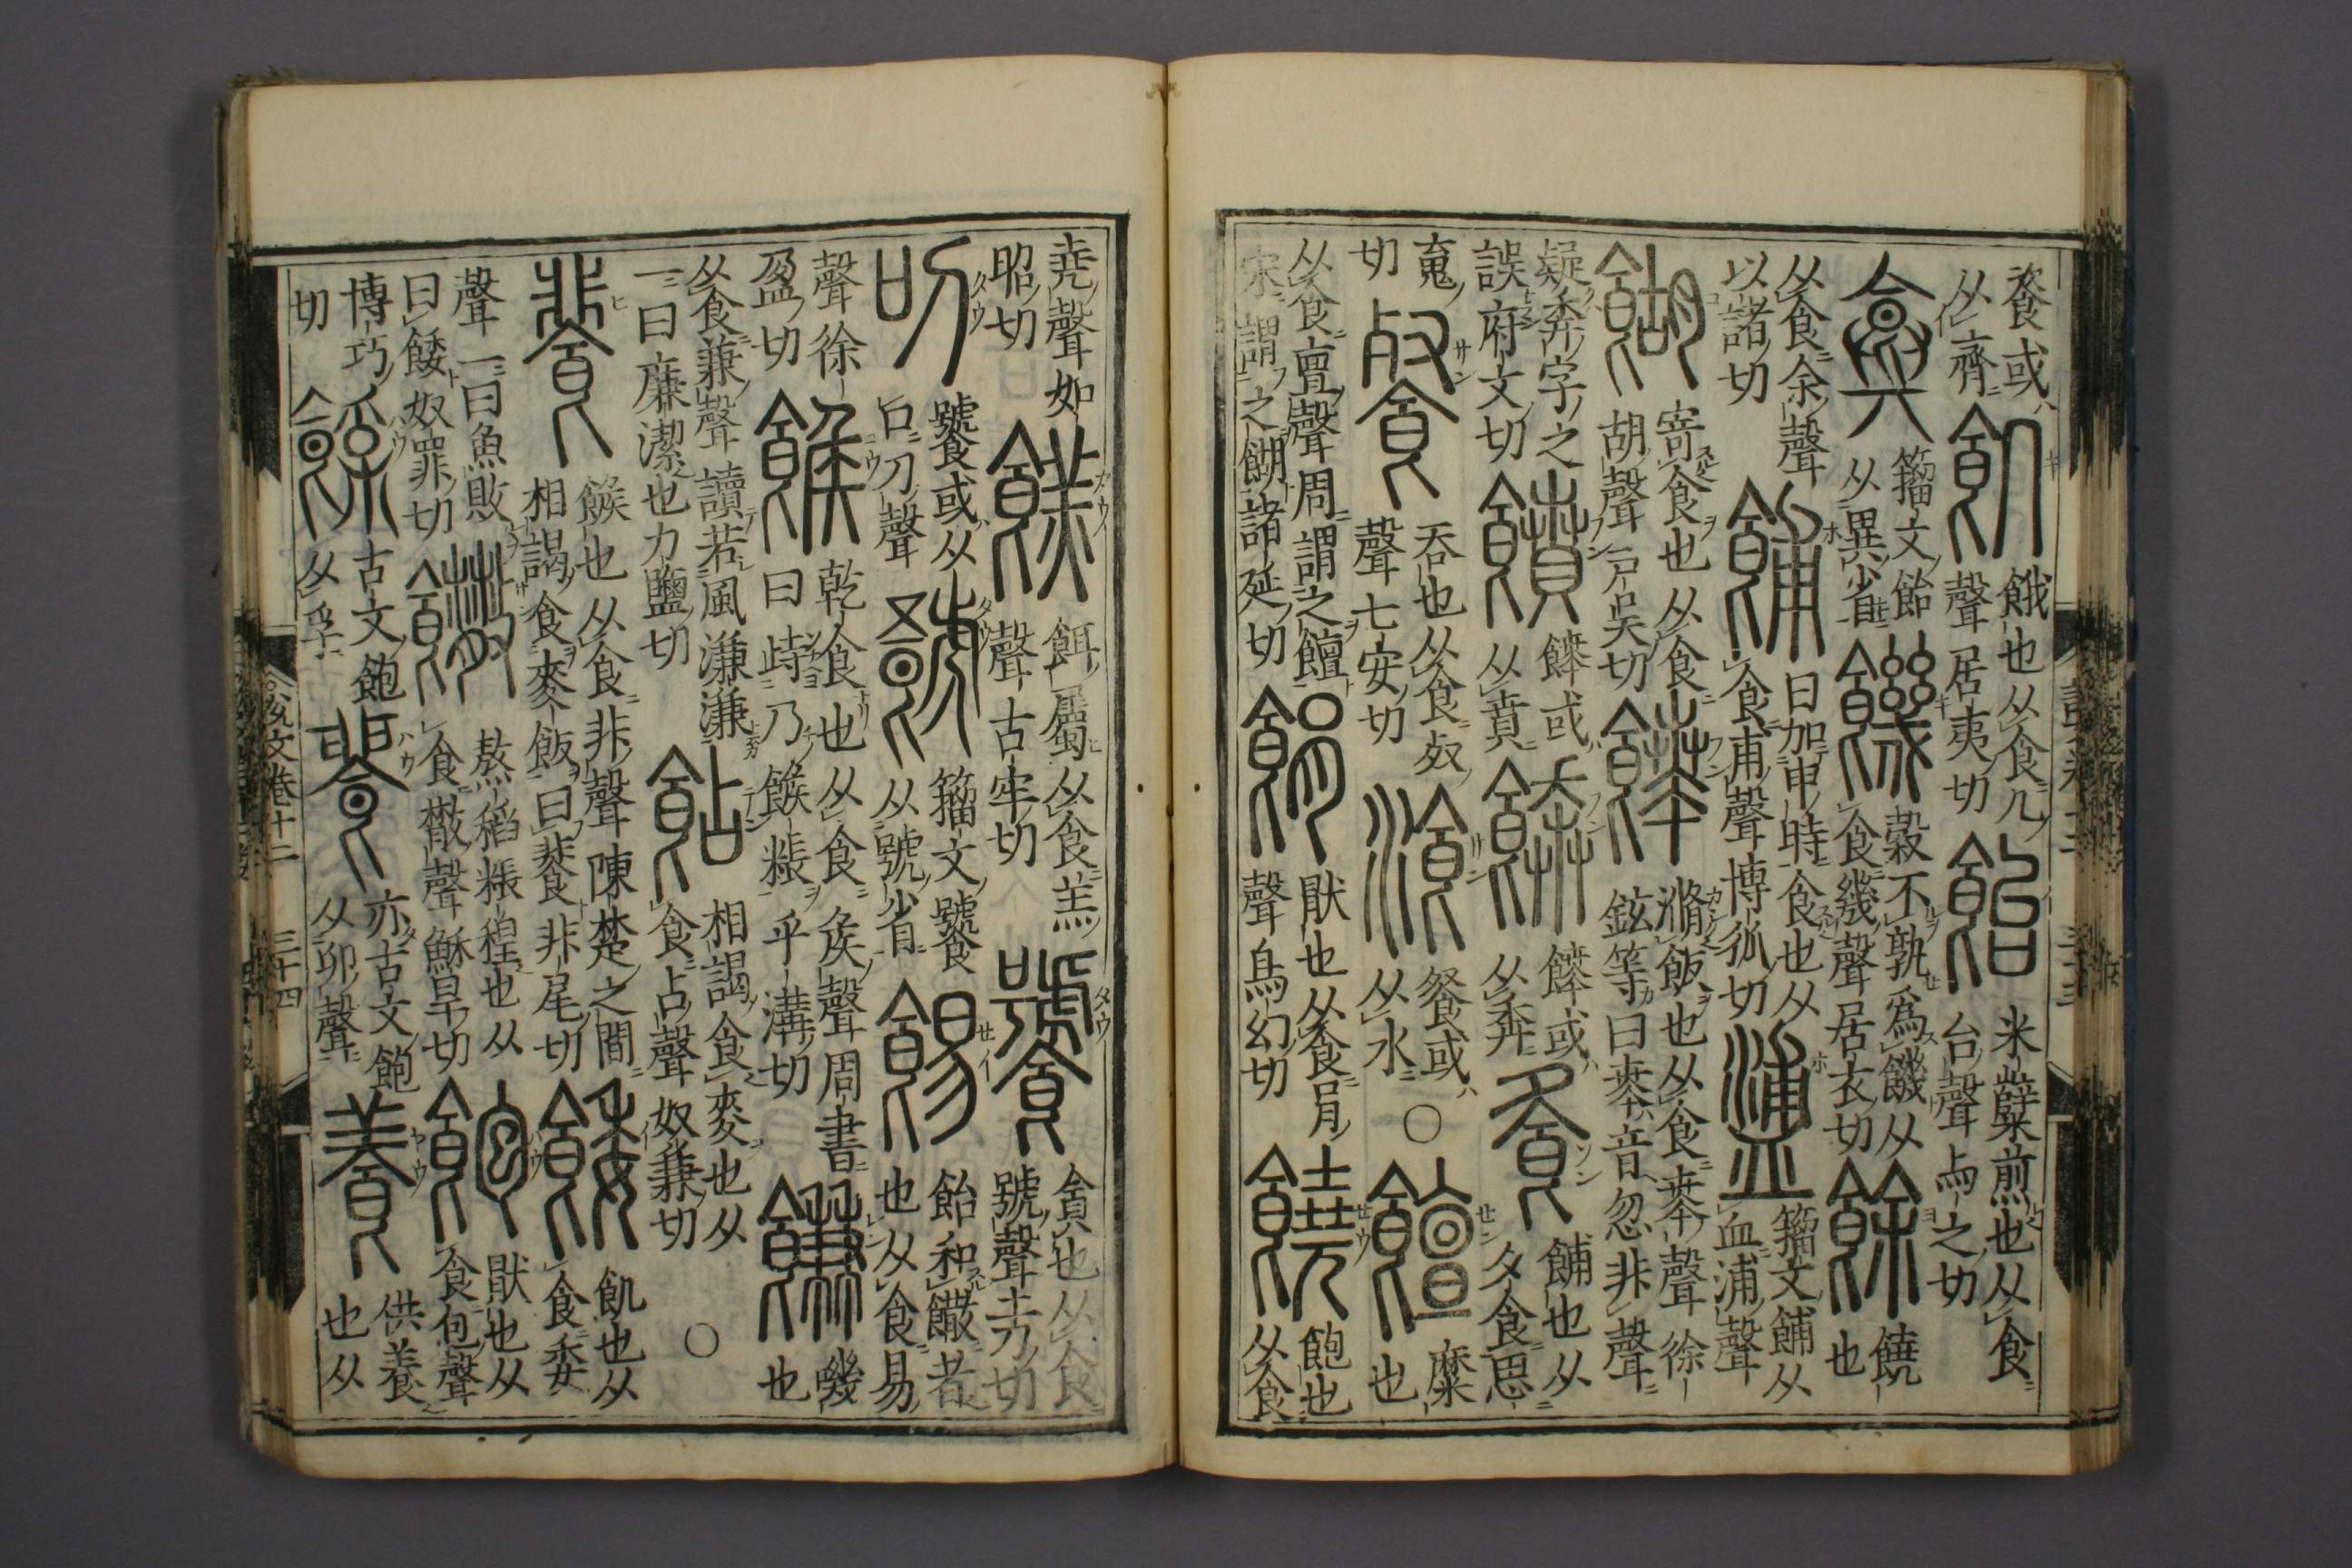 餈或
从齊
飢
餓也从食几
聲居夷切
飴
米糵煎也从食
台聲与之切
籀文飴
从異省
饑
穀不孰爲饑从
食幾聲居衣切
餘
饒
也
从食余聲
以諸切
餔
日加申時食也从
食甫聲博狐切
籀文餔从
血浦聲
餬
寄食也从食
胡聲戶吳切
餴
滫飯也从食𠦪聲徐
鉉等曰𠦪音忽非聲
疑奔字之
誤府文切
饙
餴或
从賁
餴或
从奔
飧
餔也从
夕食思
䰟
切
餐
吞也从食𣦼
聲七安切
湌
餐或
从水
○
饘
糜
也
从食亶聲周謂之饘
宋謂之餬諸延切
猒也从食肙
聲烏幻切
饒
飽也
从食
堯聲如
昭切
餻
餌屬从食羔
聲古牢切
饕
貪也从食
號聲土刀切
叨
饕或从
口刀聲
籀文饕
从號省
餳
飴和饊者
也从食易
聲徐
盈切
餱
乾食也从食矦聲周書
曰峙乃餱粻乎溝切
嘰
也
从食兼聲讀若風溓溓
一曰廉潔也力鹽切
相謁食麥也从
食占聲奴兼切
○
餥
餱也从食非聲陳楚之間
相謁食麥飯曰餥非尾切
餧
飢也从
食委
聲一曰魚敗
曰餧奴罪切
饊
熬稻粻䅣也从
食㪔聲穌旱切
飽
猒也从
食包聲
博巧
切
古文飽
从孚
亦古文飽
从卯聲
養
供養
也从
說文卷十二 三十四